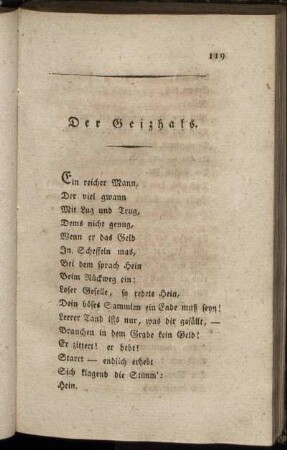 119
Der Geizhals.
Ein reicher Mann,
Der viel gwann
Mit Lug und Trug,
Dems nicht genug,
Wenn er das Geld
In Scheffeln mas,
Bei dem sprach Hein
Beim Rückweg ein:
Loser Geselle, so redete Hein,
Dein böses Sammlen ein Ende muß seyn!
Leerer Tand ists nur, was dir gefälle, —
Brauchen in dem Grabe kein Geld!
Er zittert! er bebt!
Starrt — endlich erhebt
Sich klagend die Stimm':
Hein,